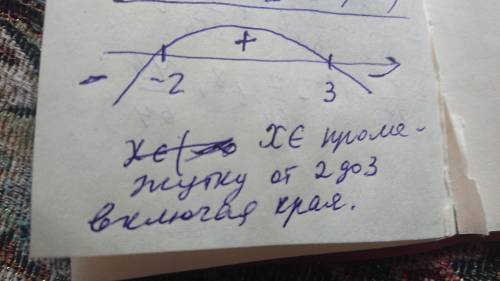 +
-
-2
3
-
х є промежутку от 2 до 3
включая края.